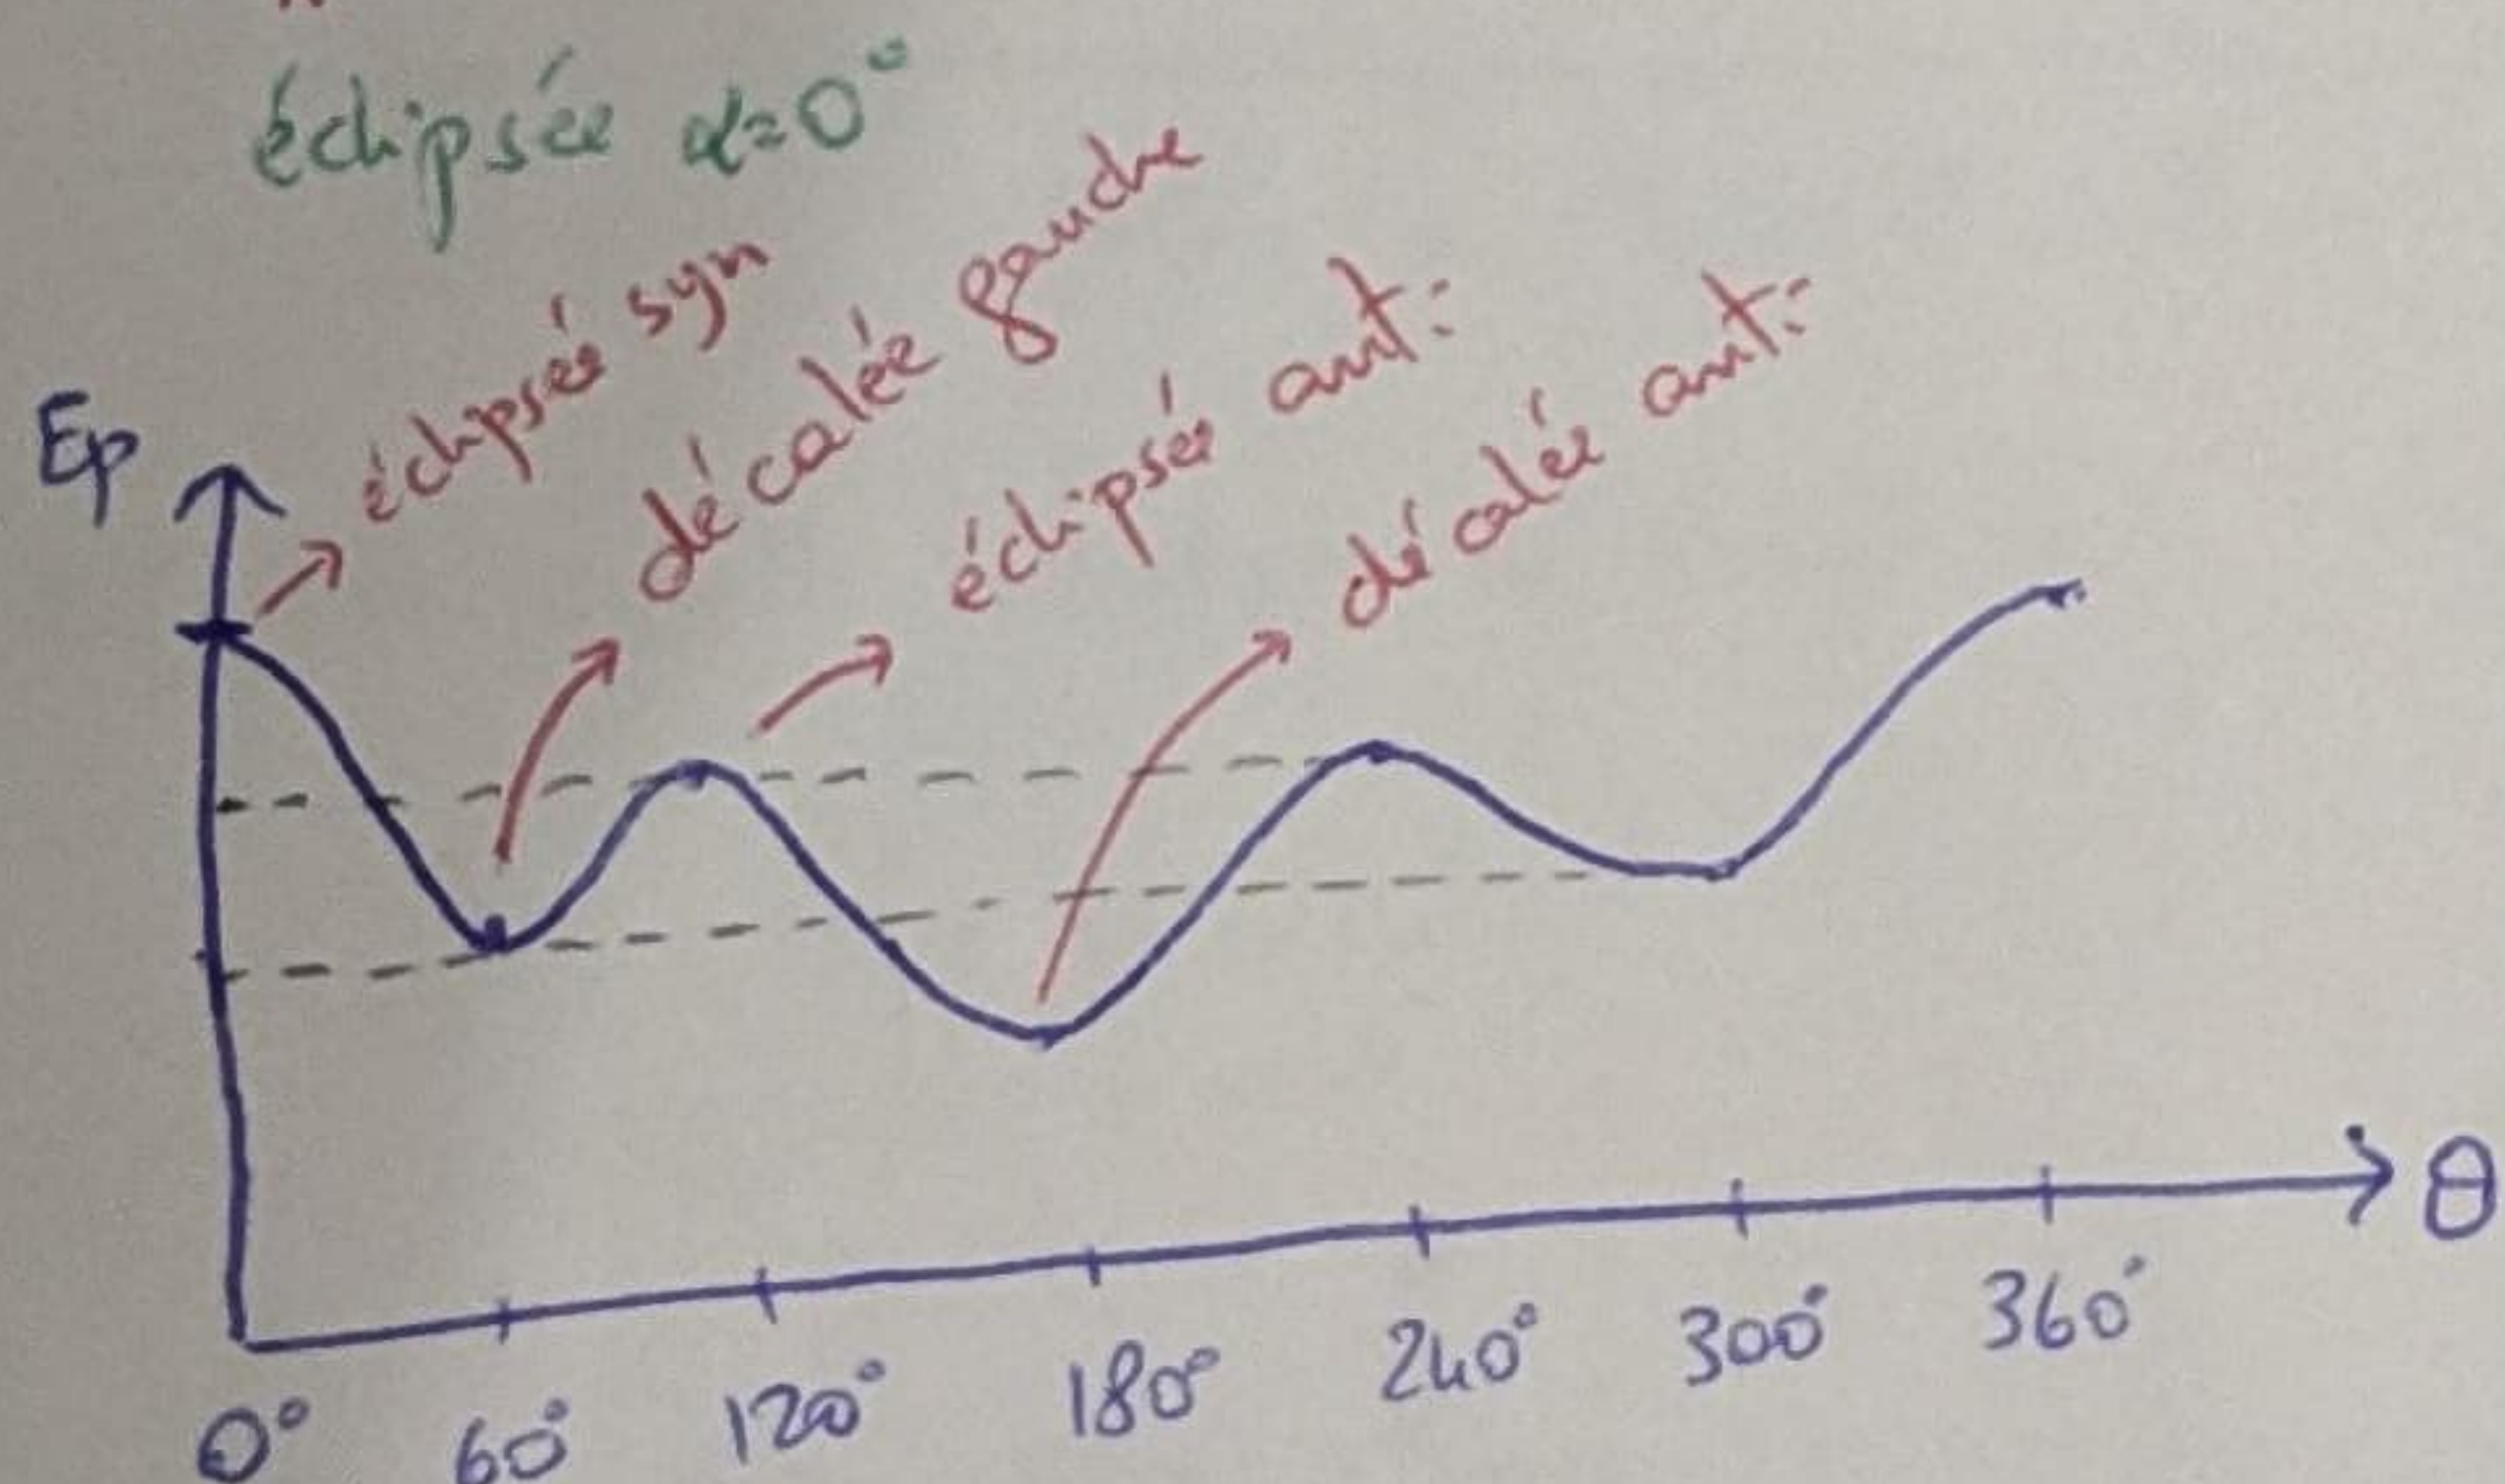 éclipsée α=0°
éclipsée syn
décalée gauche
éclipsée anti
décalée anti
Ep
θ
0° 60° 120° 180° 240° 300° 360°